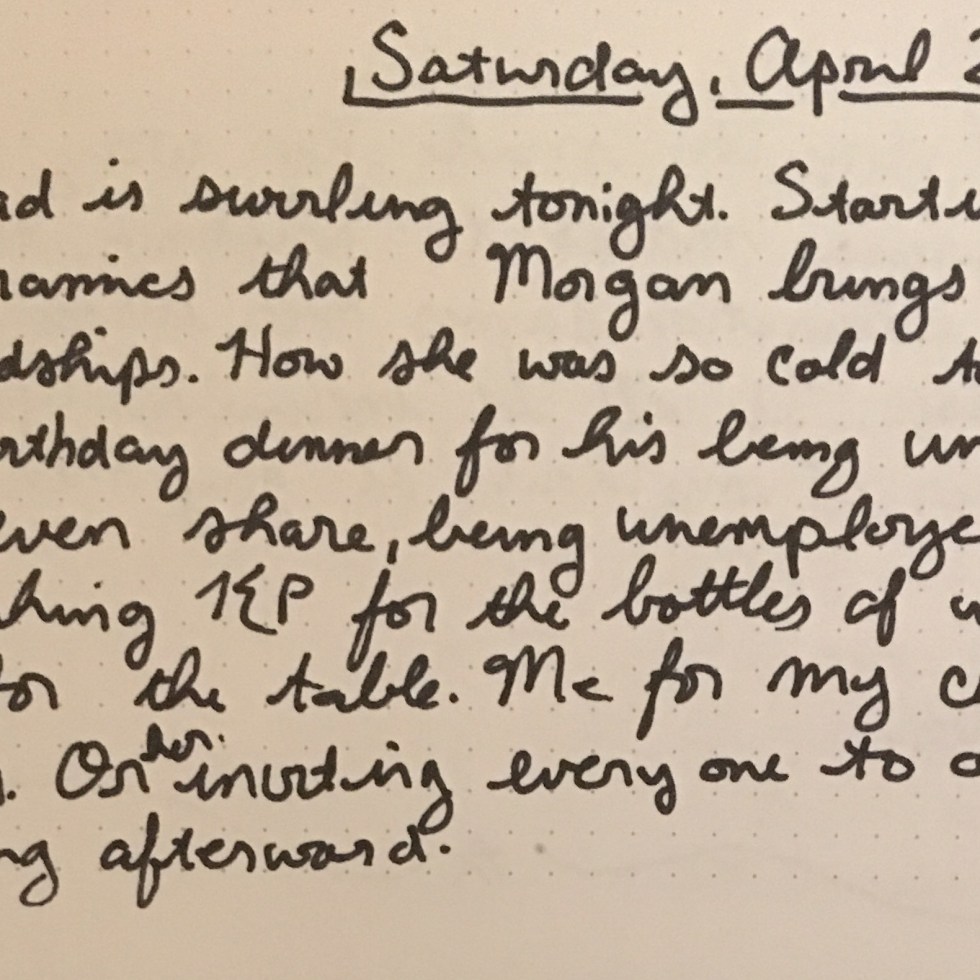 Saturday, April 2
ad is swirling tonight. Starti
namics that Morgan brings
dships. How she was so cold to
rthday dinner for his being un
even share, being unemploye
hing KP for the bottles of w
for the table. Me for my c
. Or her inviting every one to
ng afterward.